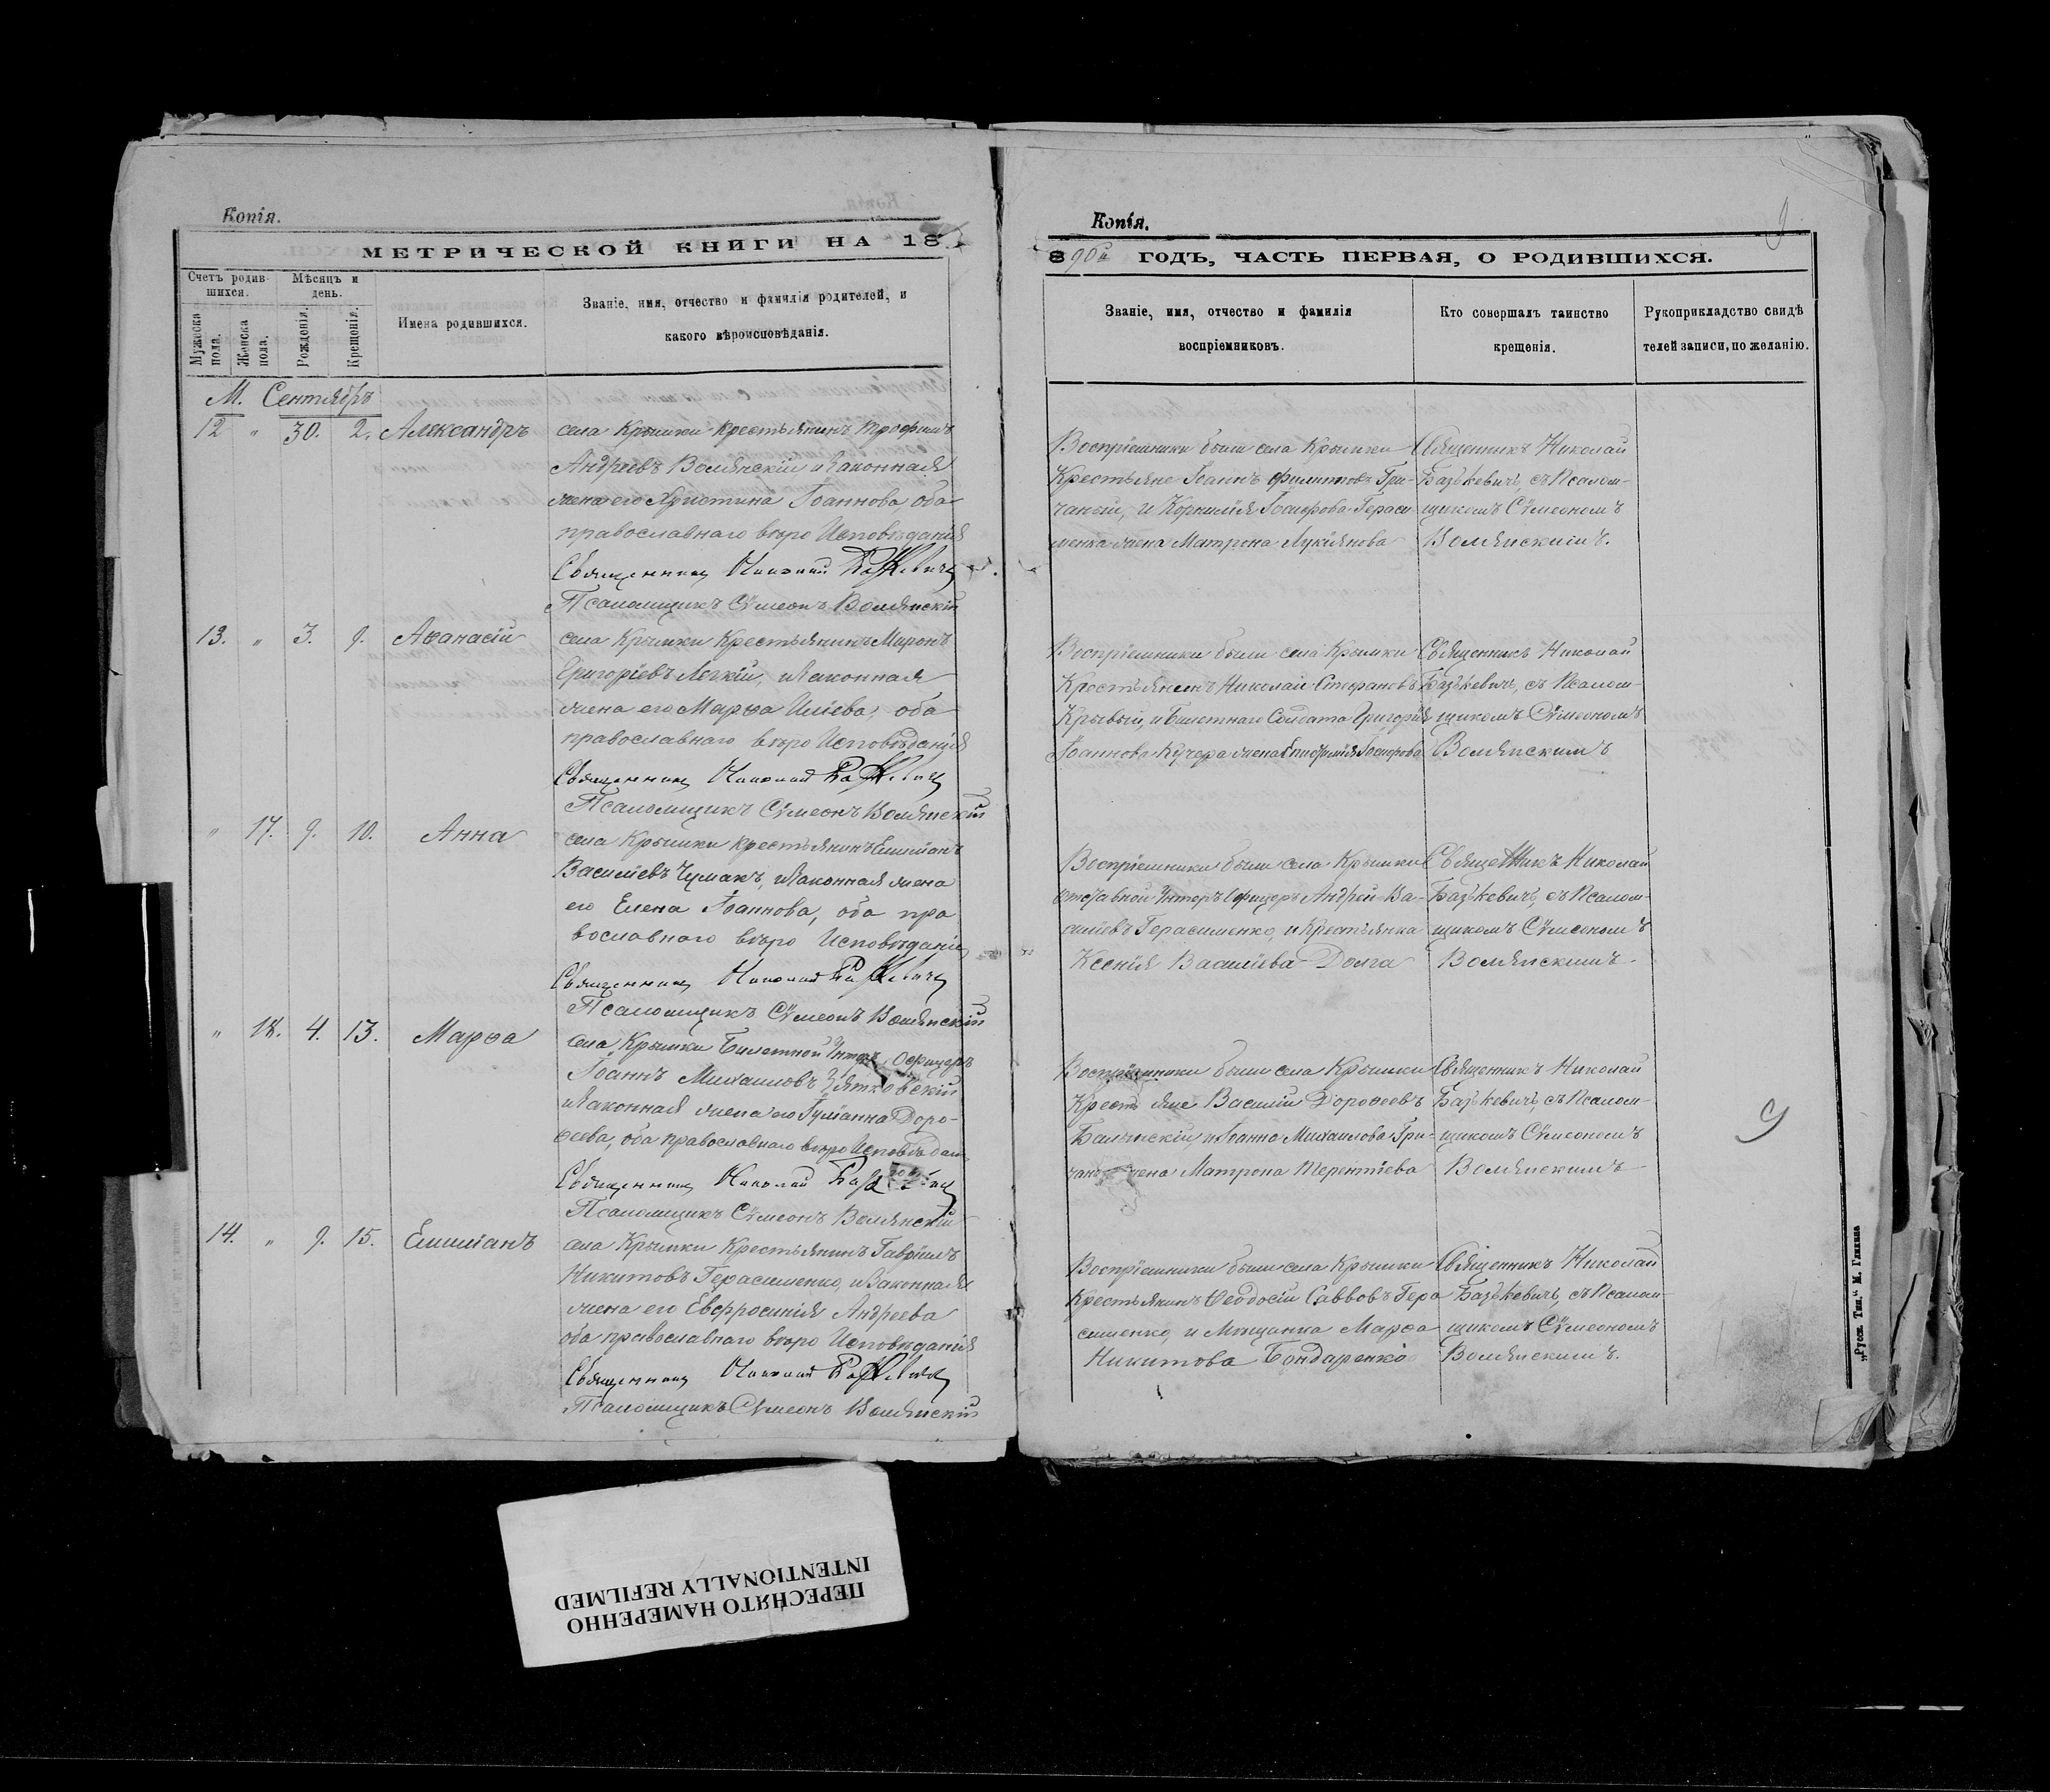 Копія.
МЕТРИЧЕСКОЙ КНИГИ НА 18
Счетъ родив-
шихся.
Мѣсяцъ и
день.
Мужеска
пола.
Женска
пола.
Рожденія.
Крещенія.
Имена родившихся.
Званіе, имя, отчество и фамилія родителей, и
какого вѣроисповѣданія.
М. Сентябрь
12 " 30. 2. Александръ
села Крымки крестьянинъ Трофимъ
Андреевъ Волянскій и законная
жена его Христина Іоаннова, оба
православнаго вѣро Исповѣданія
Священникъ Николай
Псаломщикъ Сѵмеонъ Волянскій
13. " 3. 9. Аѳанасій
села Крымки Крестьянинъ Миронъ
Григоріевъ Легкій, и законная
жена его Марѳа Иліева, оба
православнаго вѣро Исповѣданія
Священникъ Николай
Псаломщикъ Сѵмеонъ Волянскій
" 17. 9. 10. Анна
села Крымки крестьянинъ Емиліанъ
Василіевъ Чумакъ, и законная жена
его Елена Іоаннова, оба пра
вославнаго вѣро Исповѣданія
Священникъ Николай
Псаломщикъ Сѵмеонъ Волянскій
" 18. 4. 13. Марѳа
села Крымки Билетной Унтеръ Офицеръ
Іоаннъ Михаиловъ
и законная жена его Іуліанна Доро-
ѳеева, оба православнаго вѣро
Священникъ Николай
Псаломщикъ Сѵмеонъ Волянскій
14. " 9. 15. Емиліанъ
села Крымки Крестьянинъ Гавріилъ
Никитовъ Герасименко, и законная
жена его Евфросинія Андреева
оба православнаго вѣро Исповѣданія
Священникъ Николай
Псаломщикъ Сѵмеонъ Волянскій
Копія.
890й ГОДЪ, ЧАСТЬ ПЕРВАЯ, О РОДИВШИХСЯ.
9
Званіе, имя, отчество и фамилія
воспріемниковъ.
Кто совершалъ таинство
крещенія.
Рукоприкладство свидѣ
телей записи, по желанію.
Воспріемники были села Крымки
Крестьяне Іоаннъ Филиповъ Гри-
чаный, и Корнилія Іосифова Гераси
менка жена Матрона Лукіянова
Священникъ Николай
Базѣкевичъ, съ Псалом-
щикомъ Сѵмеономъ
Волянскимъ.
Воспріемники были села Крымки
Крестьянинъ Николай Стефановъ
Крывый, и Билетнаго Солдата Григорія
Іоаннова Кучера жена Іосифова
Священникъ Николай
Базѣкевичъ, съ Псалом-
щикомъ Сѵмеономъ
Волянскимъ
Воспріемники были села Крымки
отставной Унтеръ Офицеръ Андрей Ва-
силіевъ Герасименко, и Крестьянка
Ксенія Василіева Долга
Священникъ Николай
Базѣкевичъ, съ Псалом
щикомъ Сѵмеономъ
Волянскимъ
Воспріемники были села Крымки
Крестьяне Василій Дороѳеевъ
и Іоанна Михаилова Гри-
жена Матрона Терентіева
Священникъ Николай
Базѣкевичъ, съ Псалом-
щикомъ Сѵмеономъ
Волянскимъ
9
Воспріемники были села Крымки
Крестьянинъ Ѳеодосій Саввовъ Гера
сименко, и Мѣщанка Марѳа
Никитова Бондаренко
Священникъ Николай
Базѣкевичъ, съ Псалом-
щикомъ Сѵмеономъ
Волянскимъ.
„Русск. Тип." М. Гликмана
ПЕРЕСНЯТО НАМЕРЕННО
INTENTIONALLY REFILMED